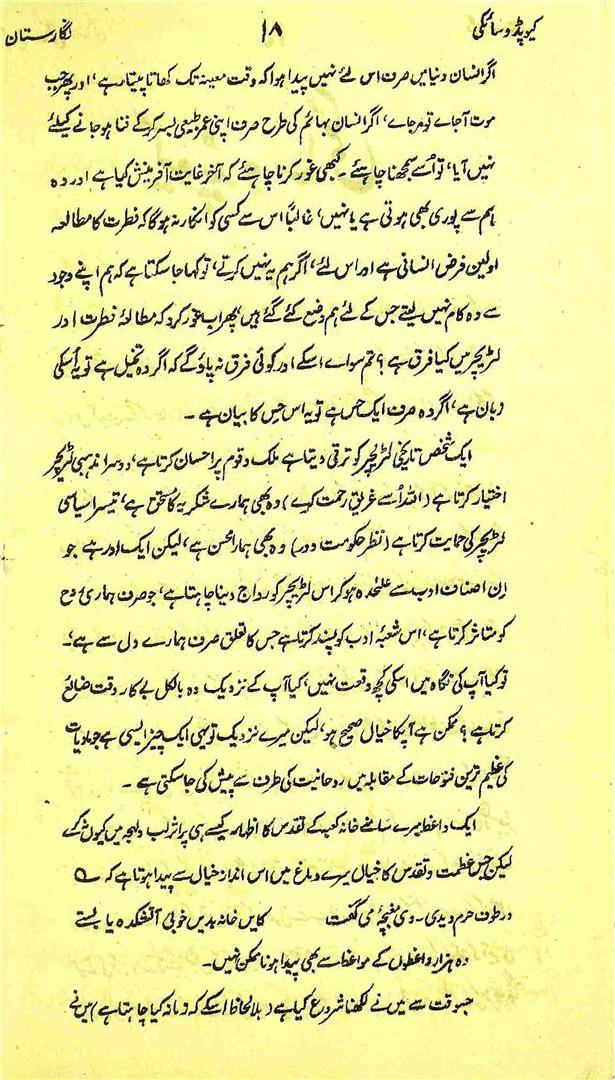 کیوپڈ و سائکی ۱۸ نگارستان
اگر انسان دنیا میں صرف اس لئے نہیں پیدا ہوا کہ وقت معینہ تک کھاتا پیتا رہے، اور پھر جب
موت آجاے تو مرجاے، اگر انسان بہائم کی طرح صرف اپنی عمر طبیعی بسر کرکے فنا ہوجانے کیلئے
نہیں آیا، تو اُسے سمجھنا چاہئے ۔ کبھی غور کرنا چاہئے کہ آخر غایت آفرینش کیا ہے اور وہ
ہم سے پوری بھی ہوتی ہے یا نہیں، غالباً اس سے کسی کو انکار نہ ہوگا کہ فطرت کا مطالعہ
اولین فرض انسانی ہے اور اس لئے، اگر ہم یہ نہیں کرتے، تو کہا جا سکتا ہے کہ ہم اپنے وجود
سے وہ کام نہیں لیتے جس کے لئے ہم وضع کئے گئے ہیں، پھر اب غور کرو کہ مطالعۂ فطرت اور
لٹریچر میں کیا فرق ہے ؟ تم سواے اسکے اور کوئی فرق نہ پاؤگے کہ اگر وہ تخیل ہے تو یہ اُسکی
زبان ہے، اگر وہ صرف ایک حِس ہے تو یہ اس حِس کا بیان ہے ۔
ایک شخص تاریخی لٹریچر کو ترقی دیتا ہے ملک و قوم پر احسان کرتا ہے، دوسرا مذہبی لٹریچر
اختیار کرتا ہے (اللہ اُسے غریق رحمت کرے) وہ بھی ہمارے شکریہ کا مستحق ہے، تیسرا سیاسی
لٹریچر کی حمایت کرتا ہے (نظر حکومت دور) وہ بھی ہمارا محسن ہے، لیکن ایک اور ہے جو
اِن اصناف ادب سے علٰحدہ ہو کر اس لٹریچر کو رواج دینا چاہتا ہے، جو صرف ہماری روح
کو متاثر کرتا ہے، اس شعبۂ ادب کو پسند کرتا ہے جس کا تعلق صرف ہمارے دل سے ہے،۔
تو کیا آپ کی نگاہ میں اسکی کچھ وقعت نہیں، کیا آپ کے نزدیک وہ بالکل بے کار وقت ضائع
کرتا ہے ؟ ممکن ہے آپکا خیال صحیح ہو، لیکن میرے نزدیک تو یہی ایک چیز ایسی ہے جو مادیات
کی عظیم ترین فتوحات کے مقابلہ میں روحانیت کی طرف سے پیش کی جاسکتی ہے ۔
ایک واعظ میرے سامنے خانہ کعبہ کے تقدس کا اظہار کیسے ہی پر اثر لب و لہجہ میں کیوں نہ کرے
لیکن جس عظمت و تقدس کا خیال میرے دماغ میں اس انداز خیال سے پیدا ہوتا ہے کہ ؎
در طوف حرم دیدی ۔ دی مغبچہ می گفت کایں خانہ بدیں خوبی آتشکدہ بایستے
وہ ہزار واعظوں کے مواعظ سے بھی پیدا ہونا ممکن نہیں ۔
جسوقت سے میں نے لکھنا شروع کیا ہے (بلا لحاظ اسکے کہ زمانہ کیا چاہتا ہے) میں نے